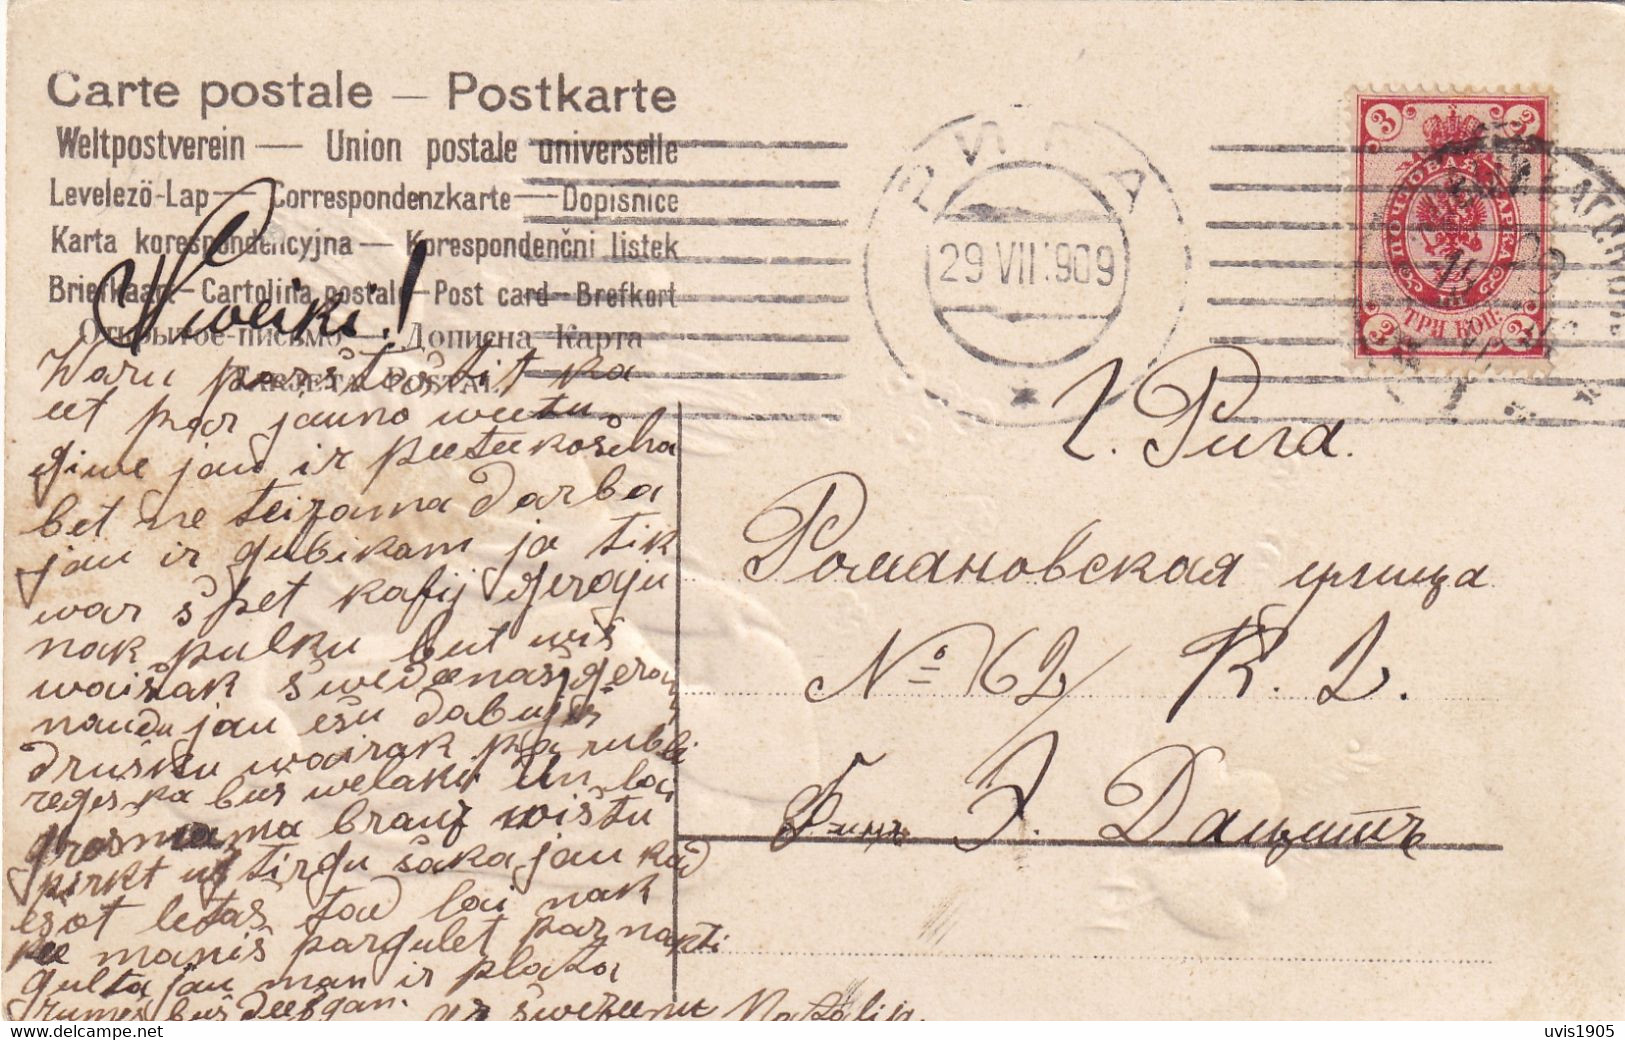 Carte postale — Postkarte
Weltpostverein — Union postale universelle
Levelező-Lap — Correspondenzkarte — Dopisnice
Karta korespondencyjna — Korespondenčni listek
Briefkaart — Cartolina postale — Post card — Brefkort
Открытое-письмо — Дописна Карта
TARJETA POSTAL
Sweiki!
Waru parstastit ka
eet par jauno weetu
giwe jau ir peeteekoscha
bet ne teizama darba
jau ir gubikam ja tik
war špet kafij geraju
nak pulku but wis
wairak šwedeenas
naudu jau ešu dabujis
drušku wairak pa rubli
reges ka bus welaki Un lai
grosmama brauz wištu
pirkt uz tirgu šaka jau kad
ešot letas tad lai nak
pee manis pargulet par nakti
gulta jau man ir plata
rumes bus deesgan. ar šweizeenu Natalija.
РИГА
29 VII 1909
3
3
ПОЧТОВАЯ МАРКА
ТРИ КОП.
3
3
Г. Рига.
Романовская улица
№ 62 К. 2.
Э. Дацитъ
uvis1905